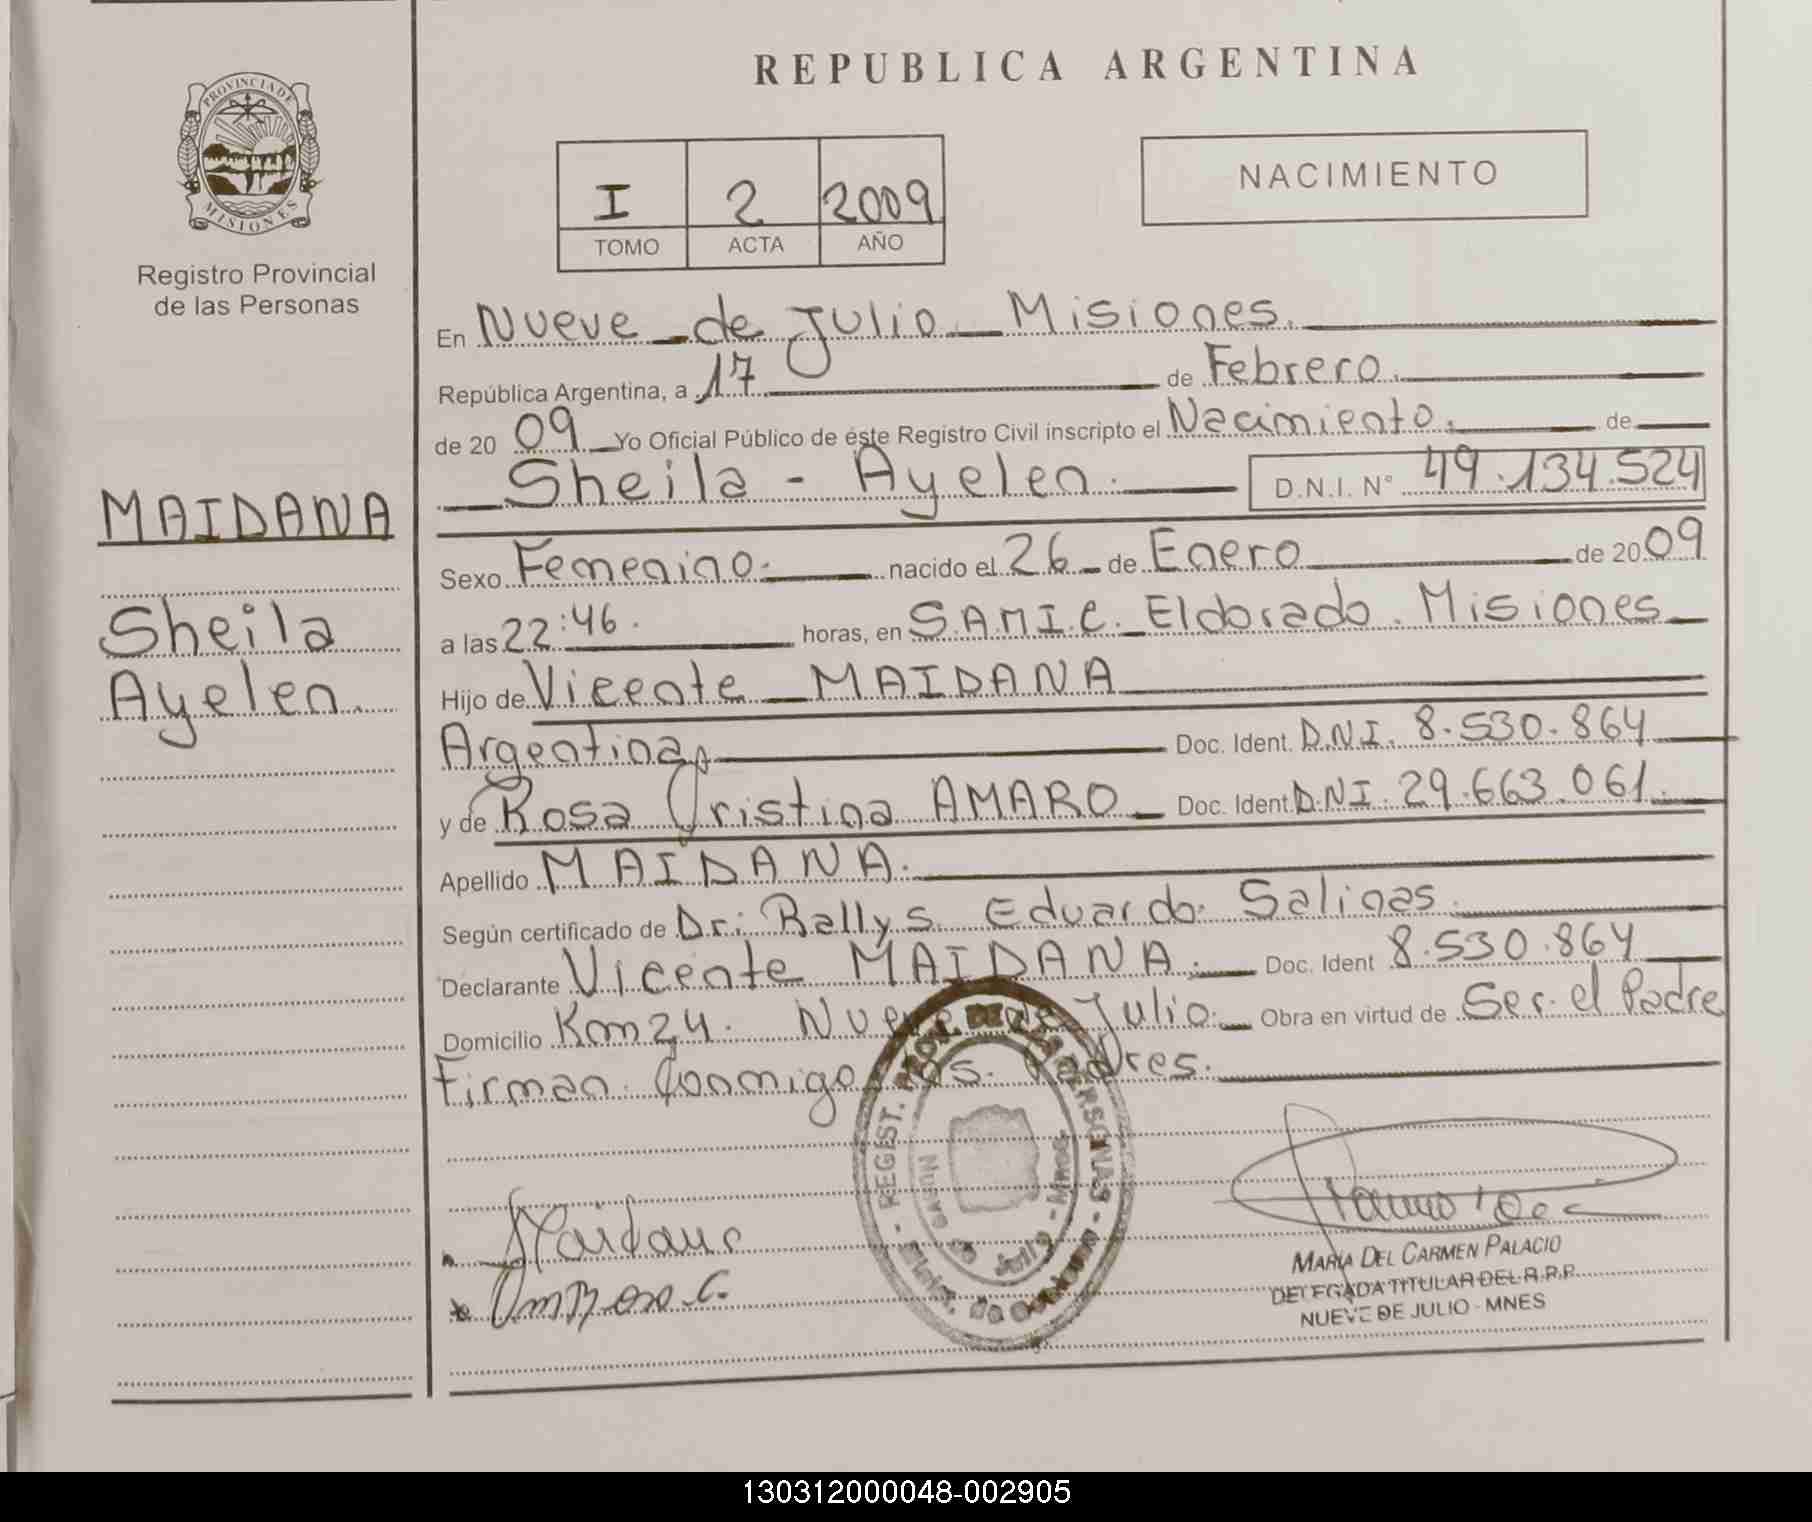 REPUBLICA ARGENTINA
PROVINCIA DE
MISIONES
Registro Provincial
de las Personas
I 2 2009
TOMO ACTA AÑO
NACIMIENTO
MAIDANA
Sheila
Ayelen.
En Nueve de Julio Misiones.
República Argentina, a 17 de Febrero.
de 20 09 Yo Oficial Público de éste Registro Civil inscripto el Nacimiento. de
Sheila - Ayelen. D.N.I. N° 49.134.524
Sexo Femenino. nacido el 26 de Enero de 20 09
a las 22:46. horas, en S.A.M.I.C. Eldorado. Misiones
Hijo de Vicente MAIDANA
Argentina Doc. Ident. D.N.I. 8.530.864
y de Rosa Cristina AMARO Doc. Ident. D.N.I. 29.663.061.
Apellido MAIDANA.
Según certificado de Dr: Rallys Eduardo Salinas.
Declarante Vicente MAIDANA. Doc. Ident 8.530.864
Domicilio Km 24. Nueve de Julio. Obra en virtud de Ser el Padre
Firman Conmigo los Padres.
REGIST. PROV. DE LAS PERSONAS
Nueve de Julio - Mnes.
Maidana
MARIA DEL CARMEN PALACIO
DELEGADA TITULAR DEL R.P.P.
NUEVE DE JULIO - MNES
130312000048-002905